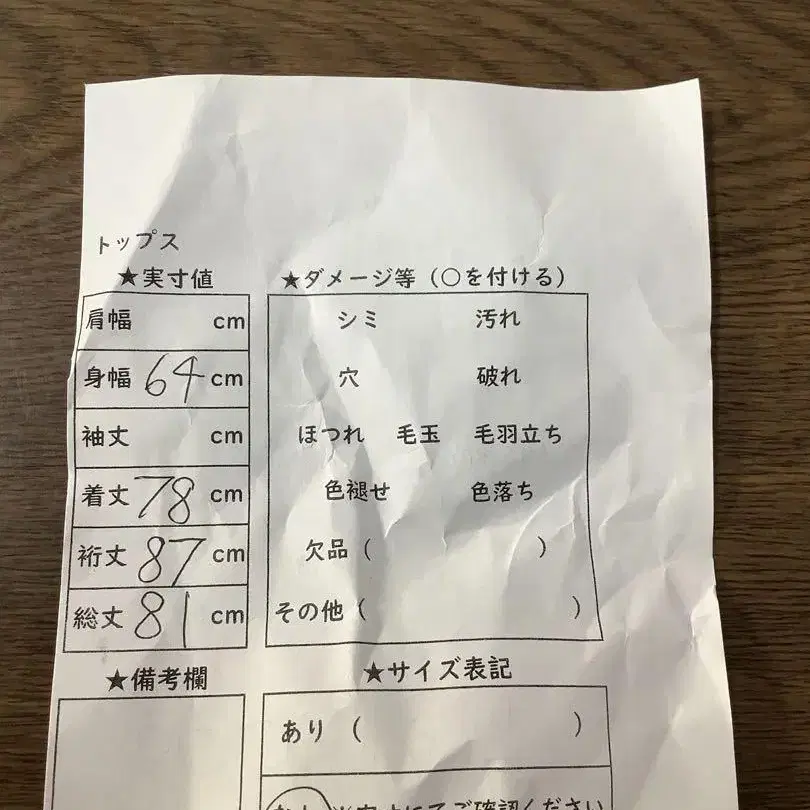 トップス
★実寸値
肩幅 cm
身幅 64 cm
袖丈 cm
着丈 78 cm
裄丈 87 cm
総丈 81 cm
★ダメージ等（○を付ける）
シミ 汚れ
穴 破れ
ほつれ 毛玉 毛羽立ち
色褪せ 色落ち
欠品（ ）
その他（ ）
★備考欄
★サイズ表記
あり（ ）
なし ※実寸にてご確認ください